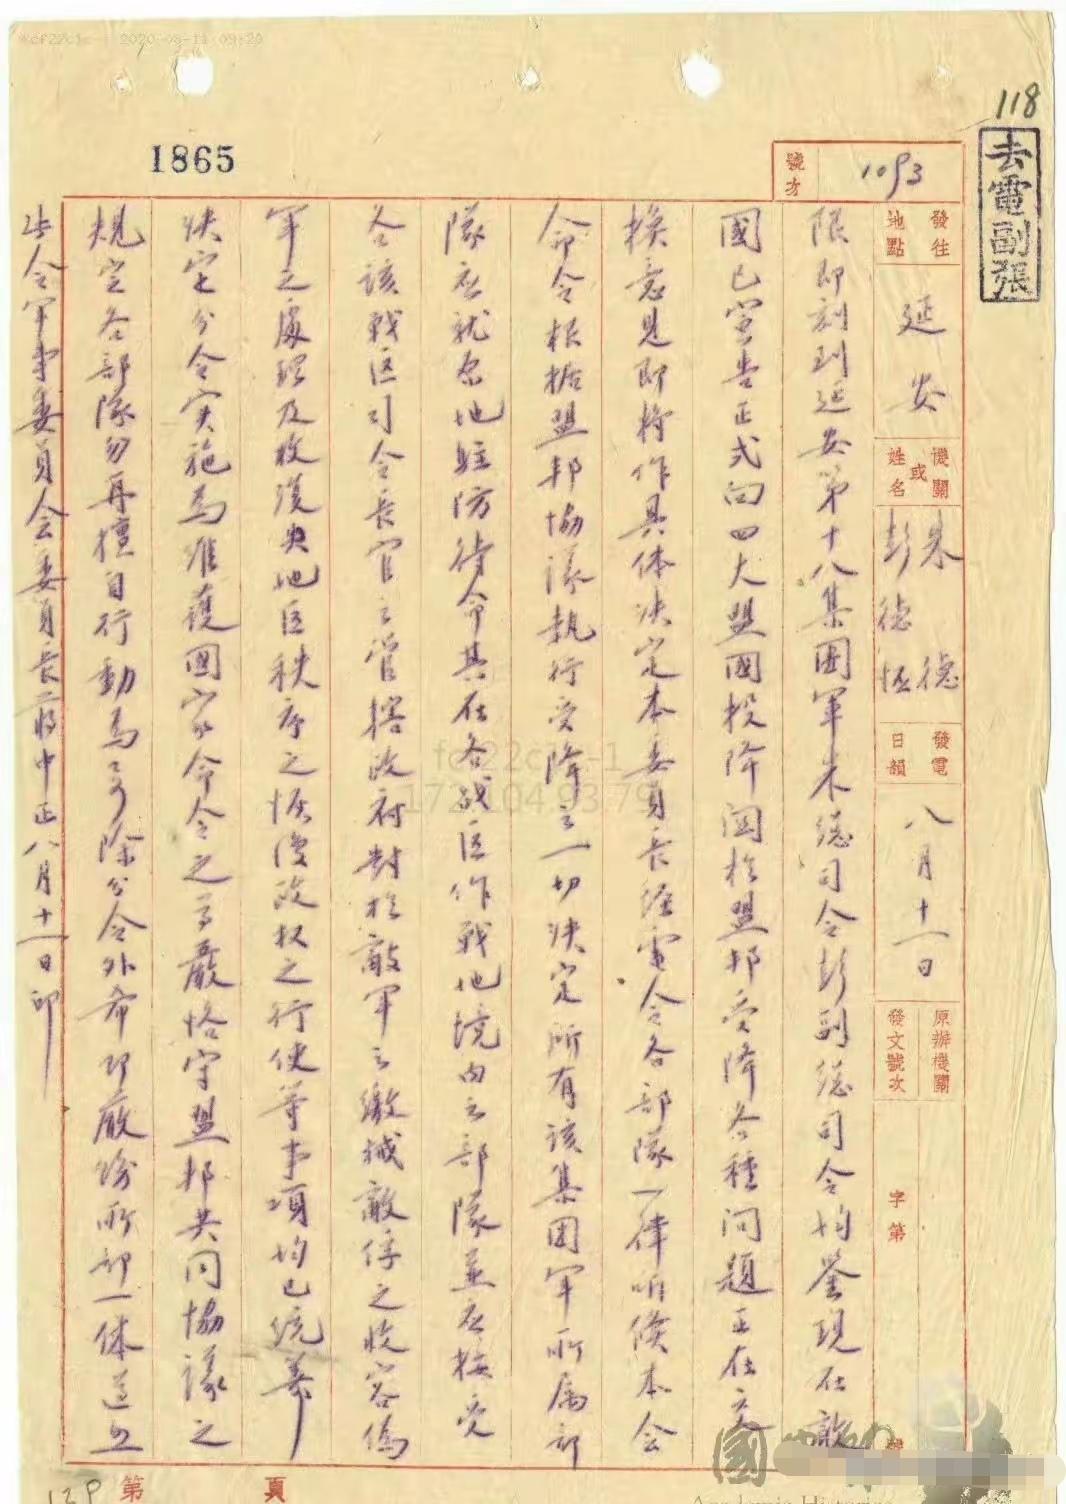 118
去電副張
1865
號次 1093
發往地點 延安
機關或姓名 朱德 彭德怀
發電日韻 八月十一日
原辦機關發文號次 字第 號
限即刻到延安第十八集團軍朱总司令彭副总司令均鉴现在敵
國已宣告正式向四大盟國投降関於盟邦受降各種问題正在交
换意見即将作具体决定本委員長经電令各部隊一律听候本会
命令根据盟邦協议执行受降之一切决定所有该集団军所属部
隊应就原地駐防待命其在各战区作戰地境内之部隊並应接受
各該戰区司令長官之管辖政府對於敵军之缴械敵俘之收容偽
军之處理及收復失地区秩序之恢復政权之行使等事項均已统筹
决定分令实施為維護國家命令之尊嚴恪守盟邦共同協議之
規定各部隊勿再擅自行動為要除分令外希即嚴飭所部一体遵照
此令军事委員会委員長蒋中正八月十一日印
第 頁
129